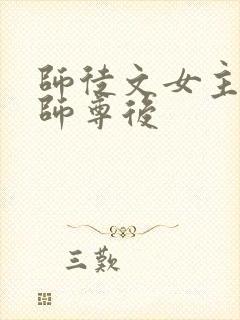 師徒文女主
師尊後
三歎